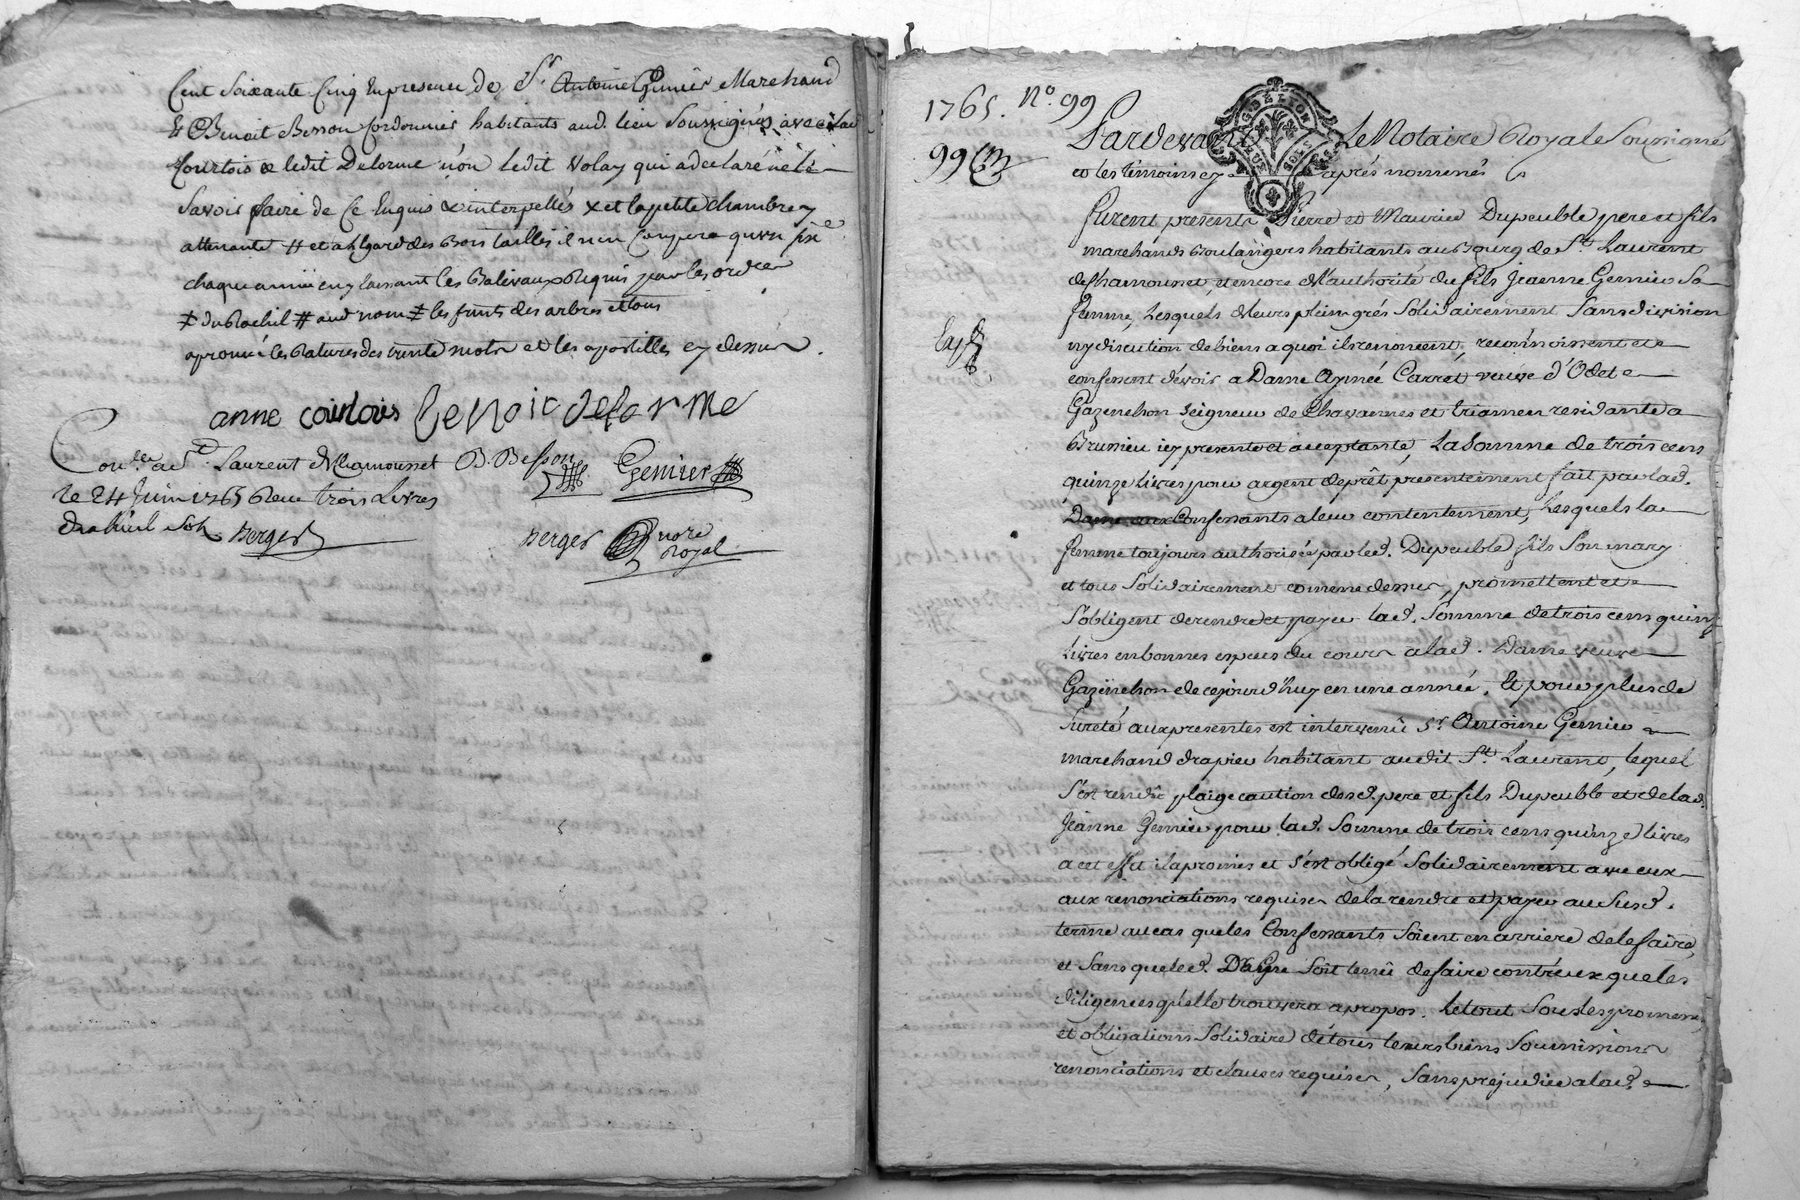 Cent Soixante Cinq En presence de Sr Antoine Genier Marchand
& Benoit Besson Cordonnier habitants aud. lieu Soussignés avec lad
Courtois & ledit Delorme non ledit Volay qui a declaré ne le
Savoir faire de Ce Enquis & interpellés x et la petite chambre y
attenante # et a l'Egard des Bois taillis il n'en Coupera qu'un sixe
chaque année en y laissant les Balivaux Requis par les ordces
# aud nom les fruits des arbres et tous
aprouvé les Ratures des trente mots et les apostilles cy dessus.
anne courtois Benoit delorme
Con.lé a St Laurent de Chamousset
B. Besson Genier
le 24 Juin 1765 Reçu trois Livres
Berger
Berger nore
Royal
1765. No. 99
99
Pardevant Le Notaire Royale Soussigné
et les témoins cy après nommés
furent presents Pierre et Maurice Dupeuble pere et fils
marchands Boulangers habitants au Bourg de St. Laurent
de Chamousset, et encore de l'authorité du fils Jeanne Genier Sa
femme, Lesquels de leurs plein grés Solidairement Sans division
ny discution de biens a quoi ils renoncent, reconnoissent et
confessent devoir a Dame Aymée Carret veuve d'Odet
Gazenchon Seigneur de Chavannes et triamen residante a
Brunieu icy presente et acceptante, La Somme de trois cens
quinze Livres pour argent de prêt presentement fait par lad.
Dame aux Confessants a leur contentement, Lesquels la
femme toujours authorisée par led. Dupeuble fils Son mary
et tous Solidairement comme dessus, promettent et
S'obligent de rendre et payer lad. Somme de trois cens quinze
Livres en bonnes especes du cours a lad. Dame veuve
Gazenchon de ce jourd'huy en une année, Et pour plus de
Sureté aux presentes est intervenû Sr. Antoine Genier
marchand drapier habitant audit St. Laurent, lequel
S'est rendû plaige caution desd. pere et fils Dupeuble et de lad.
Jeanne Genier pour lad. Somme de trois cens quinze livres
a cet effet il a promis et S'est obligé Solidairement avec eux
aux renonciations requises de la rendre et payer au Susd.
terme au cas que les Confessants Soient en arriere de le faire,
et Sans que lad. Dame Soit tenuë de faire contr'eux que les
diligences qu'elle trouvera apropos. Le tout Sous les promesses
et obligations Solidaire de tous leurs biens Soumissions
renonciations et clauses requises, Sans prejudice a lad.